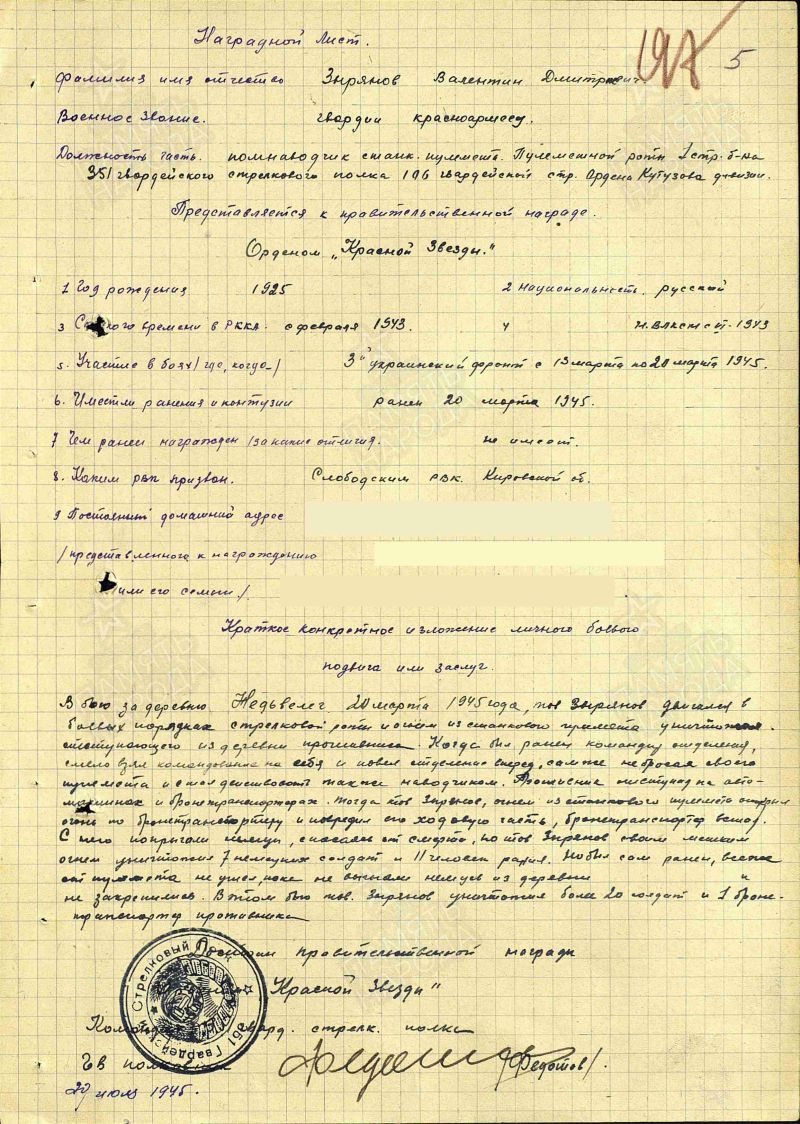 Наградной лист.
197 5
Фамилия имя отчество Зырянов Валентин Дмитревич.
Военное Звание. гвардии красноармеец.
Должность часть. помнаводчик станк. пулемета. Пулеметной роты 1 стр. б-на
351 гвардейского стрелкового полка 106 гвардейской стр. Ордена Кутузова дивизии.
Представляется к правительственной награде.
Орденом „Красной Звезды."
1 Год рождения 1925 2 Национальность. русский
3 С какого времени в РККА. с февраля 1943. 4 1943
5. Участие в боях /где, когда-/ 3й украинский фронт с 13 марта по 20 марта 1945.
6. Имеет ли ранения и контузии ранен 20 марта 1945.
7 Чем ранее награжден /за какие отличия. не имеет.
8. Каким рвк призван. Слободским РВК. Кировской об.
9 Постоянный домашний адрес
/представленного к награждению
или его семьи/.
Краткое конкретное изложение личного боевого
подвига или заслуг.
В бою за деревню Недьвелег 20 марта 1945 года, тов Зырянов двигался в
боевых порядках стрелковой роты и огнем из станкового пулемета уничтожал
отступающего из деревни противника. Когда был ранен командир отделения,
смело взял командование на себя и повел отделение вперед, сам же не бросая своего
пулемета и стал действовать также наводчиком. Противник отступал на авто-
машинах и бронетранспортерах. Тогда тов Зырянов, огнем из станкового пулемета открыл
огонь по бронетранспортеру и повредил его ходовую часть, бронетранспортер встал.
С него попрыгали немцы, спасаясь от смерти, но тов Зырянов своим метким
огнем уничтожил 7 немецких солдат и 11 человек ранил. Но был сам ранен, все же
от пулемета не ушел, пока не выгнали немцев из деревни и
не закрепились. В этом бою тов. Зырянов уничтожил более 20 солдат и 1 броне-
транспортер противника
Достоин правительственной награды
Красной Звезды"
Командир гвард. стрелк. полка
Гв полковник /Федотов/.
июля 1945.
Стрелковый 351 Гвардейский